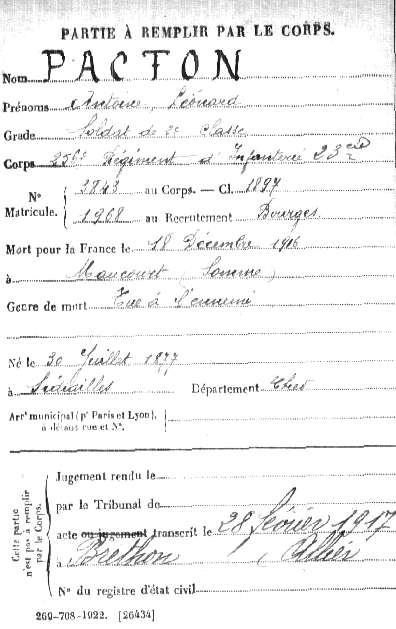 PARTIE À REMPLIR PAR LE CORPS.
Nom PACTON
Prénoms Antoine, Léonard
Grade Soldat de 2e Classe
Corps 256e Régiment d'Infanterie 23e
N° Matricule. 3843 au Corps. — Cl. 1897
1968 au Recrutement Bourges
Mort pour la France le 18 Décembre 1916
à Maucourt (Somme)
Genre de mort Tué à l'ennemi
Né le 30 Juillet 1877
à Sidiailles Département Cher
Arrt municipal (pr Paris et Lyon), à défaut rue et N°.
Cette partie n'est pas à remplir par le Corps.
Jugement rendu le
par le Tribunal de
acte ou jugement transcrit le 28 février 1917
à Brethon (Allier
N° du registre d'état civil
269-708-1922. [26434]